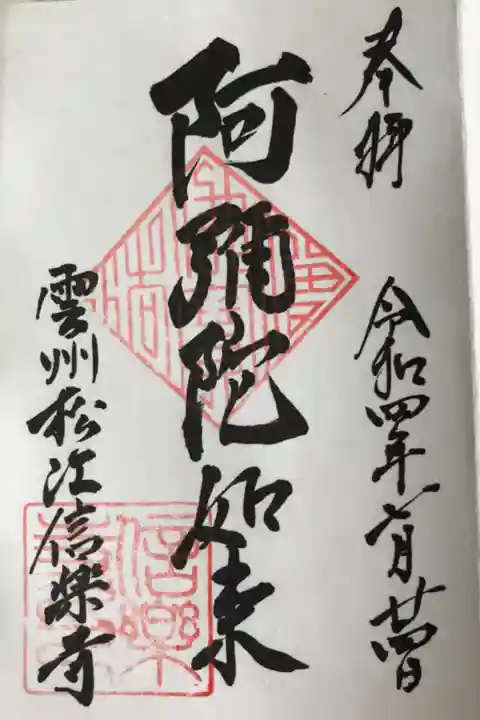 奉拝
令和四年七月廿四日
阿彌陀如来
雲州松江信楽寺
信樂